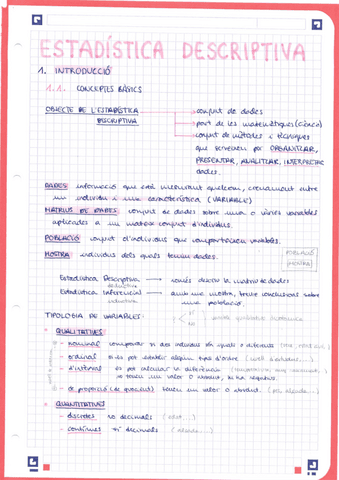 ESTADÍSTICA DESCRIPTIVA
1. INTRODUCCIÓ
1.1. CONCEPTES BÀSICS
OBJECTE DE L'ESTADÍSTICA → conjunt de dades
DESCRIPTIVA → part de les matemàtiques (ciència)
→ conjunt de mètodes i tècniques
que serveixen per ORGANITZAR,
PRESENTAR, ANALITZAR, INTERPRETAR
dades.
DADES informació que està mesurant quelcom, creuament entre
un individu i una característica (VARIABLE)
MATRIUS DE DADES conjunt de dades sobre una o vàries variables
aplicades a un mateix conjunt d'individus.
POBLACIÓ conjunt d'individus que comparteixen variables.
MOSTRA individus dels quals tenim dades.
POBLACIÓ
MOSTRA
Estadística Descriptiva → només descriu la matriu de dades
deductiva
Estadística Inferencial → amb una mostra, treure conclusions sobre
inductiva
una població.
TIPOLOGIA DE VARIABLES:
• QUALITATIVES
- nominal comparar si dos individus són iguals o diferents
- ordinal si és pot establir algun tipus d'ordre
- d'interval és pot calcular la diferència
- de proporció (de quocient) tenen un valor 0 absolut.
• QUANTITATIVES
- discretes no decimals
- contínues sí decimals